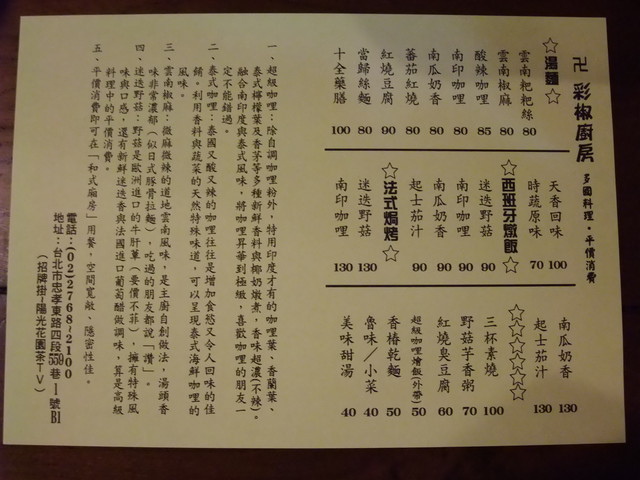 卍 彩椒廚房 多國料理·平價消費
☆湯麵☆
雲南粑粑絲 80
雲南椒麻 80
酸辣咖哩 85
南印咖哩 80
南瓜奶香 80
蕃茄紅燒 80
紅燒豆腐 90
當歸絲麵 80
十全藥膳 100
天香回味 100
時蔬原味 70
☆西班牙燉飯☆
迷迭野菇 90
南印咖哩 90
南瓜奶香 90
起士茄汁 90
☆法式焗烤☆
迷迭野菇 130
南印咖哩 130
南瓜奶香 130
起士茄汁 130
☆☆☆☆☆☆
三杯素燒 100
野菇芋香粥 70
紅燒臭豆腐 60
超級咖哩燴飯(外帶) 50
香椿乾麵 50
魯味／小菜 40
美味甜湯 40
一、超級咖哩：除自調咖哩粉外，特用印度才有的咖哩葉、香蘭葉、
泰式檸檬葉及香茅等多種新鮮香料與椰奶燉煮，香味超濃(不辣)。
融合南印度與泰式風味，將咖哩昇華到極緻，喜歡咖哩的朋友一
定不能錯過。
二、泰式咖哩：泰國又酸又辣的咖哩往往是增加食慾又令人回味的佳
餚。利用香料與蔬菜的天然特殊味道，可以呈現泰式海鮮咖哩的
風味。
三、雲南椒麻：微麻微辣的道地雲南風味，是主廚自創做法，湯頭香
味非常濃郁（似日式豚骨拉麵），吃過的朋友都說「讚」。
四、迷迭野菇：野菇是歐洲進口的牛肝蕈（要價不菲），擁有特殊風
味與口感，還有新鮮迷迭香與法國進口葡萄醋做調味，算是高級
料理中的平價消費。
五、平價消費即可在「和式廂房」用餐，空間寬敞、隱密性佳。
電話：(02)2768-2100
地址：台北市忠孝東路四段559巷一號B1
（招牌掛-陽光花園茶TV）